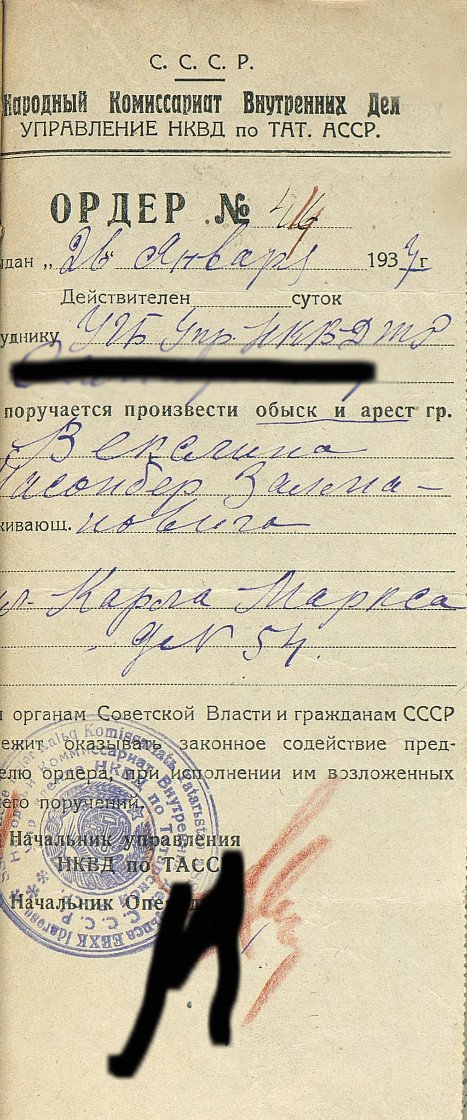 С. С. С. Р.
Народный Комиссариат Внутренних Дел
УПРАВЛЕНИЕ НКВД по ТАТ. АССР.
ОРДЕР № 44
ыдан „ 26 Января 1937 г
Действителен суток
уднику УГБ Упр. НКВД ТР
поручается произвести обыск и арест гр.
Векслина
Насонбер Залма-
живающ. новича
ул. Карла Маркса
д № 54.
органам Советской Власти и гражданам СССР
лежит оказывать законное содействие пред-
елю ордера, при исполнении им возложенных
него поручений.
Начальник управления
НКВД по ТАСС
Начальник Опер